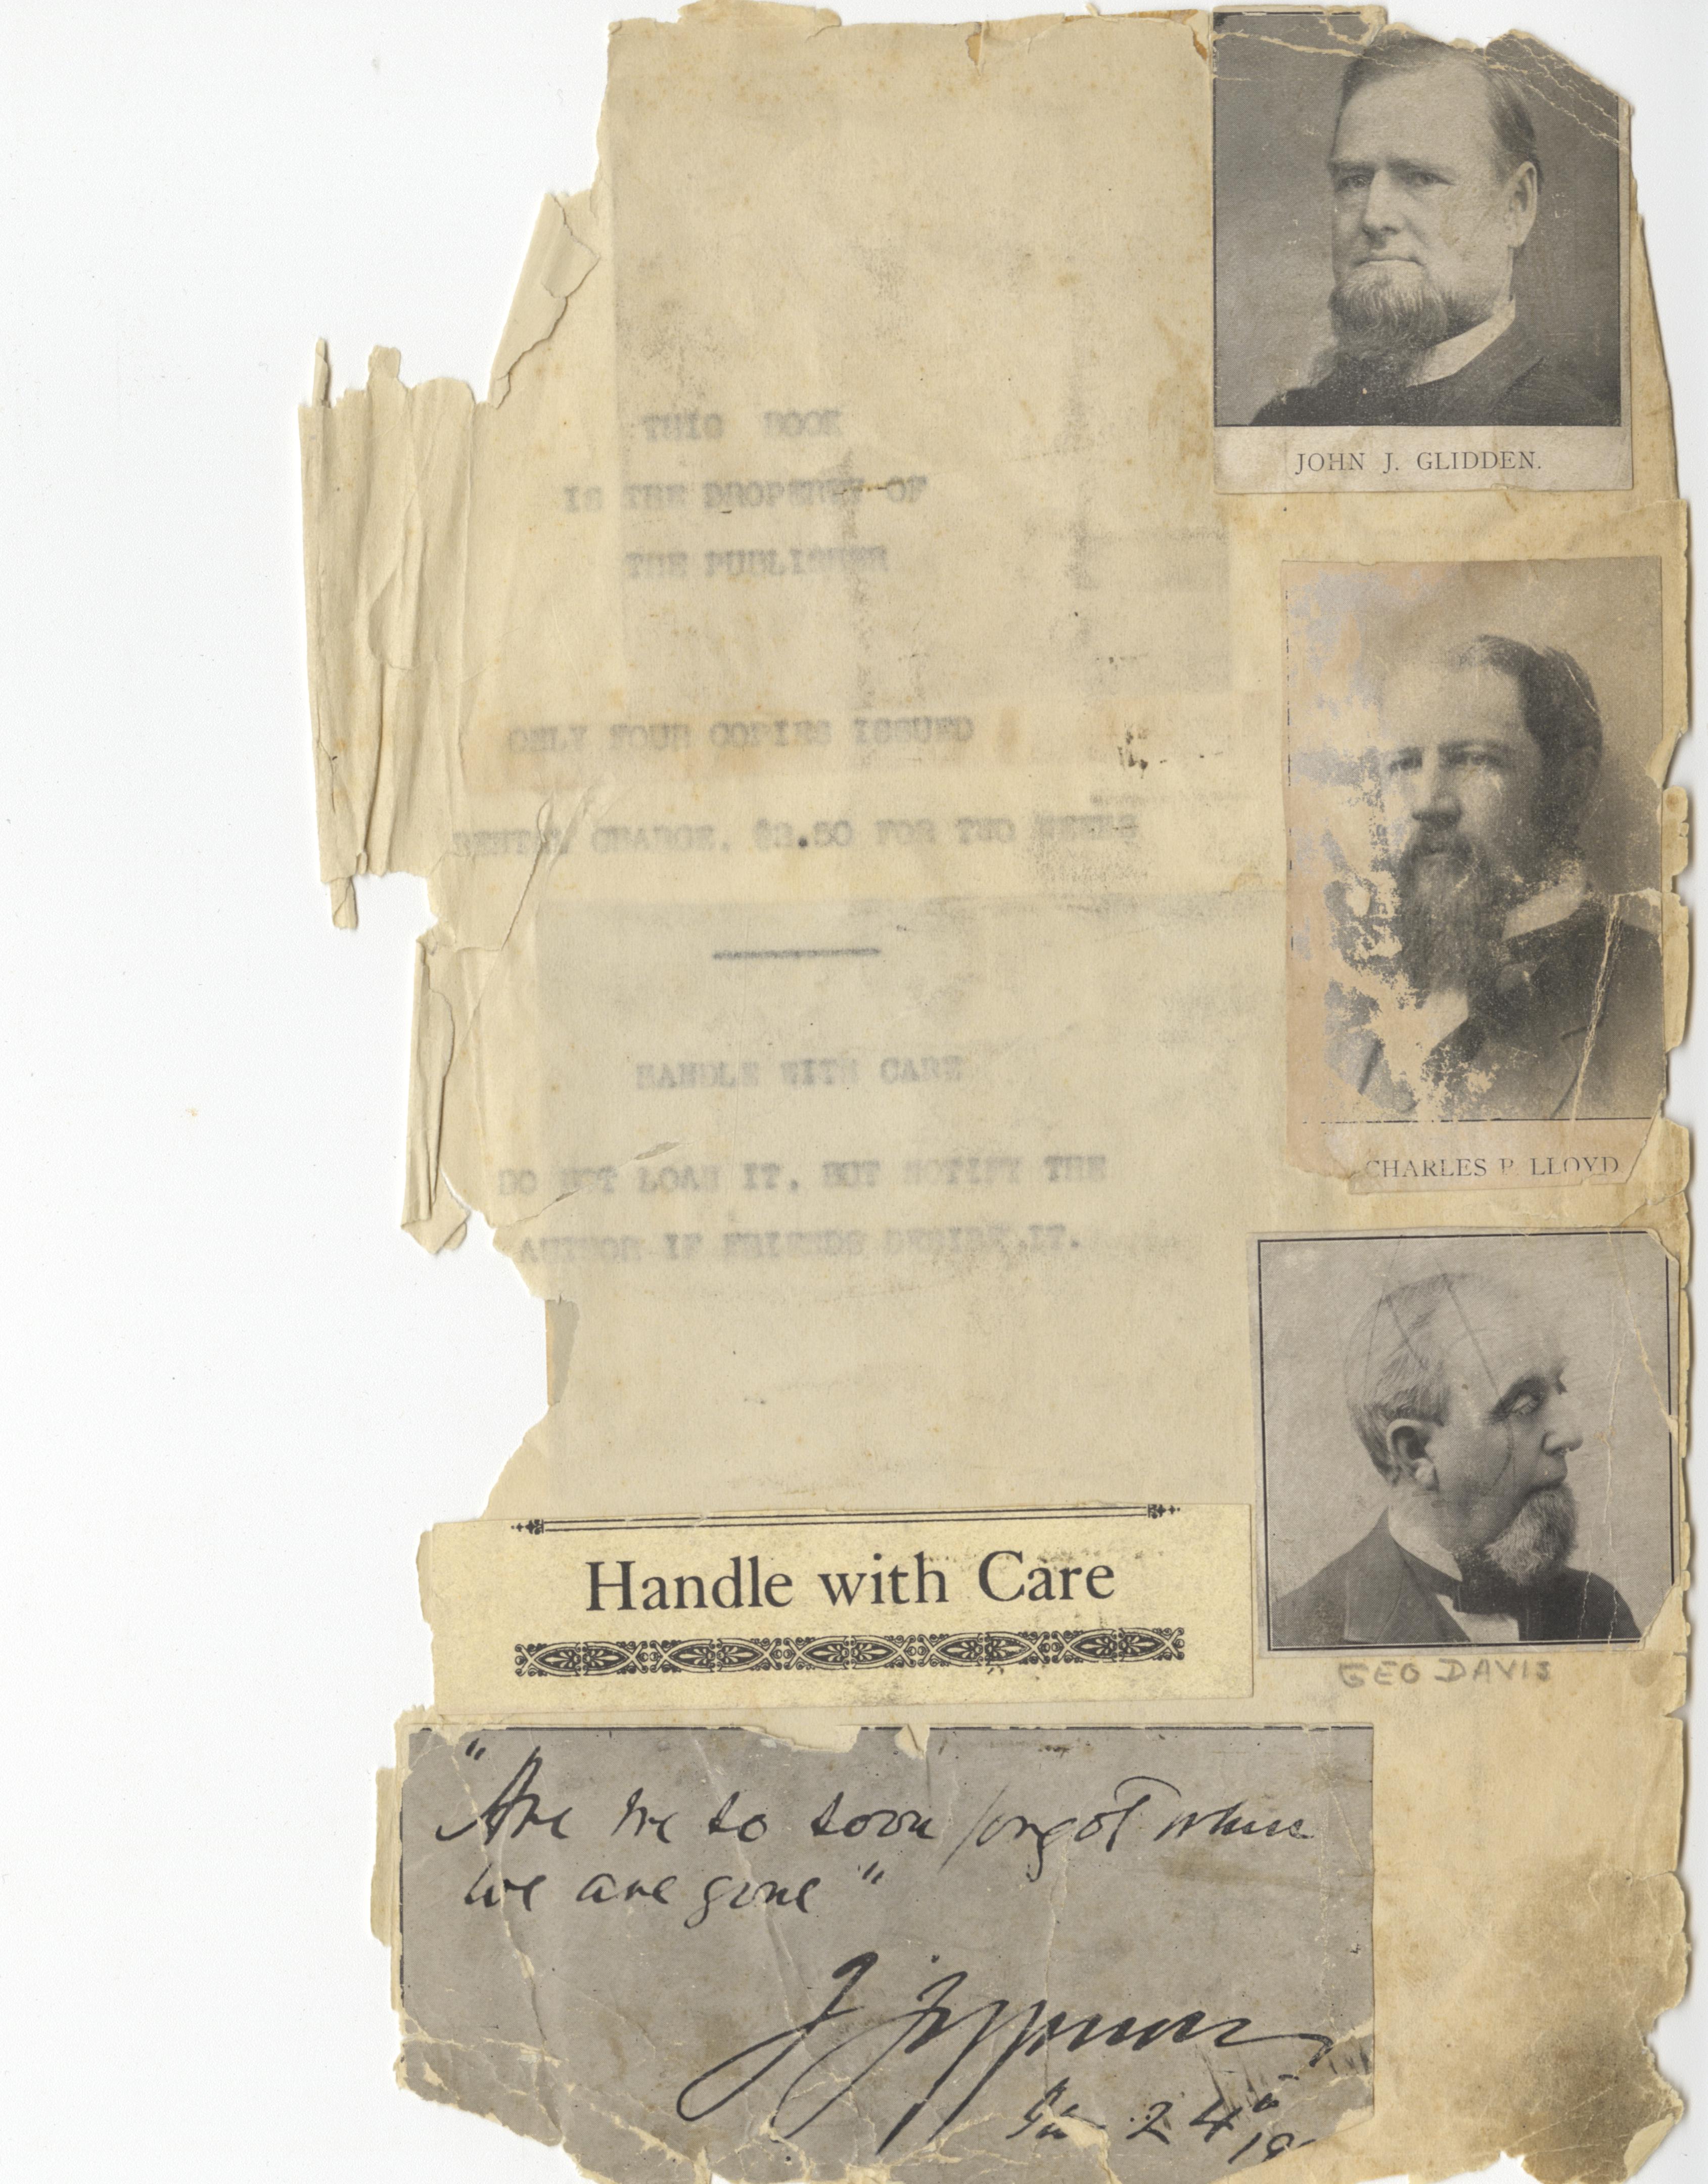 THIS BOOK
IS THE PROPERTY OF
THE PUBLISHER
ONLY FOUR COPIES ISSUED
RENTAL CHARGE, $2.50 FOR TWO WEEKS
HANDLE WITH CARE
DO NOT LOAN IT, BUT NOTIFY THE
AUTHOR IF FRIENDS DESIRE IT.
JOHN J. GLIDDEN.
CHARLES P. LLOYD
GEO DAVIS
Handle with Care
"Are we so soon forgot when
we are gone"
J Jefferson
24